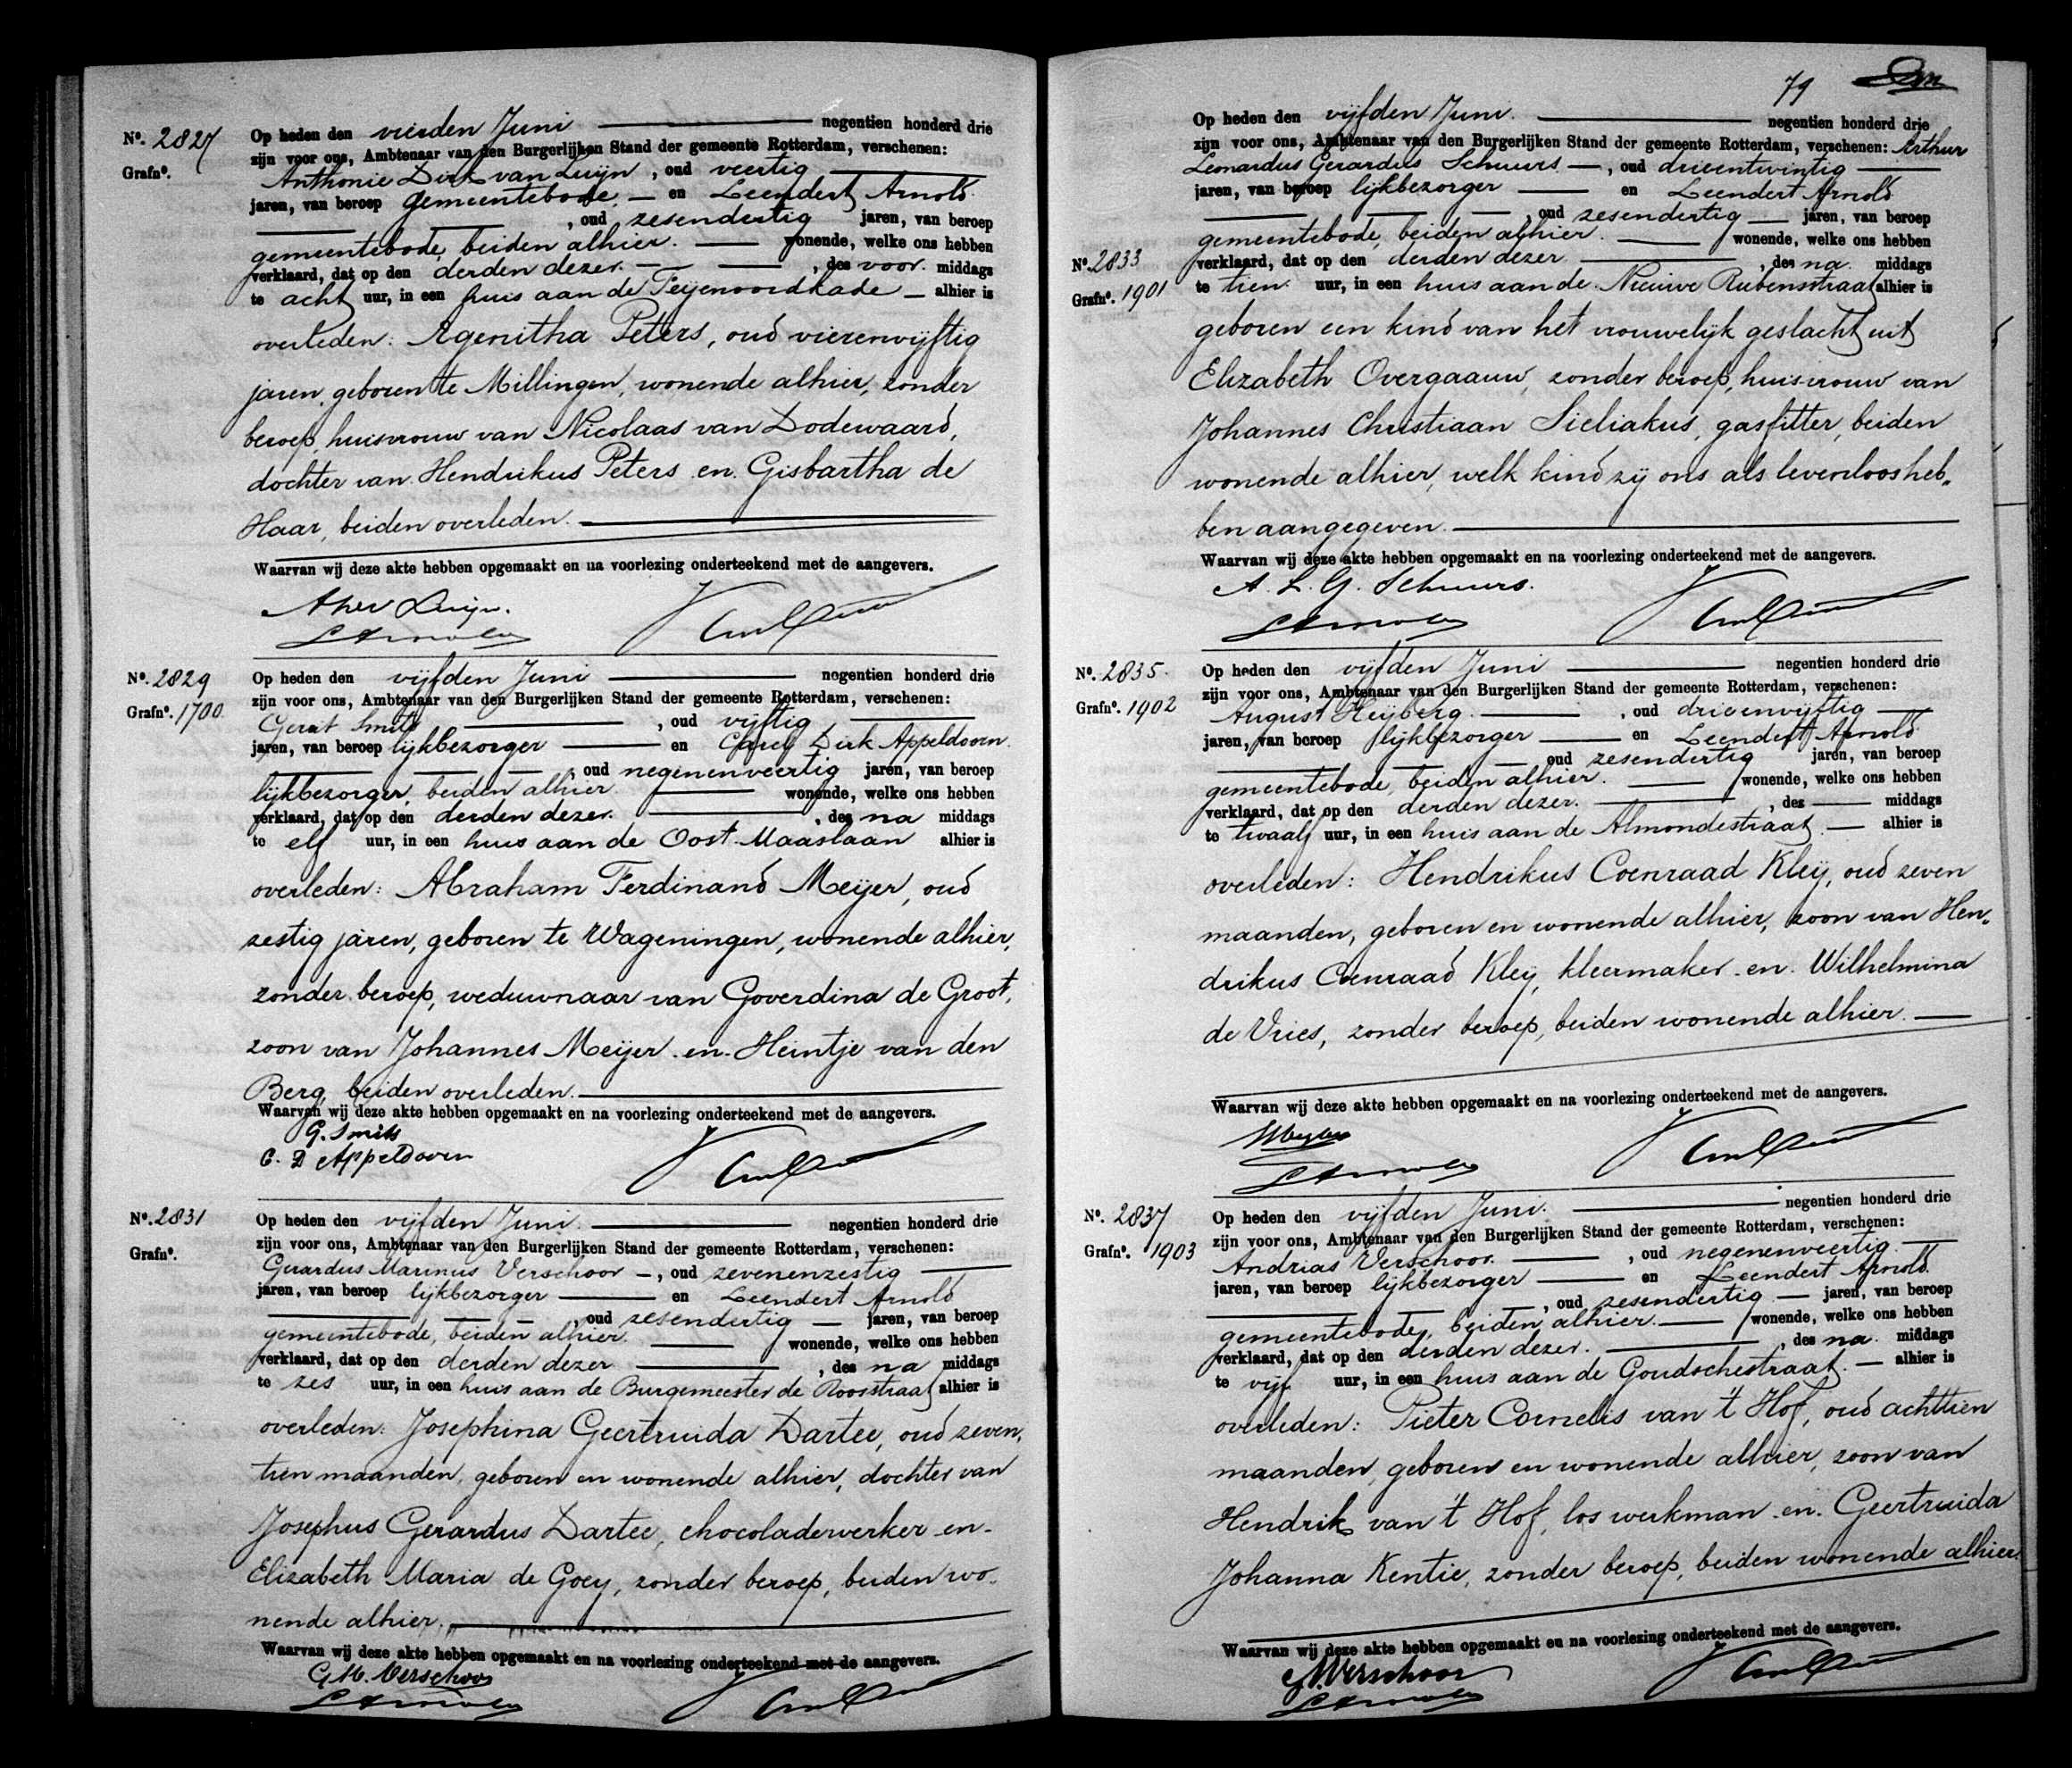 No. 2827
Grafno.
Op heden den vierden Juni negentien honderd drie
zijn voor ons, Ambtenaar van den Burgerlijken Stand der gemeente Rotterdam, verschenen:
Anthonie Dirk van Luijn, oud veertig
jaren, van beroep gemeentebode, en Leendert Arnold
, oud zesendertig jaren, van beroep
gemeentebode, beiden alhier. wonende, welke ons hebben
verklaard, dat op den derden dezer. , des voor. middags
te acht uur, in een huis aan de Feijenoordkade alhier is
overleden: Agenitha Peters, oud vierenvijftig
jaren, geboren te Millingen, wonende alhier, zonder
beroep, huisvrouw van Nicolaas van Dodewaard,
dochter van Hendrikus Peters en Gisbartha de
Haar, beiden overleden.
Waarvan wij deze akte hebben opgemaakt en na voorlezing onderteekend met de aangevers.
LArnold
No. 2829
Grafno. 1700
Op heden den vijfden Juni negentien honderd drie
zijn voor ons, Ambtenaar van den Burgerlijken Stand der gemeente Rotterdam, verschenen:
Gerrit Smits, oud vijftig
jaren, van beroep lijkbezorger en Carel Dirk Appeldoorn
, oud negenenveertig jaren, van beroep
lijkbezorger, beiden alhier wonende, welke ons hebben
verklaard, dat op den derden dezer. , des na middags
te elf uur, in een huis aan de Oost Maaslaan alhier is
overleden: Abraham Ferdinand Meijer, oud
zestig jaren, geboren te Wageningen, wonende alhier,
zonder beroep, weduwnaar van Goverdina de Groot,
zoon van Johannes Meijer en Heintje van den
Berg, beiden overleden.
Waarvan wij deze akte hebben opgemaakt en na voorlezing onderteekend met de aangevers.
G. Smits
C. D Appeldoorn
No. 2831
Grafno.
Op heden den vijfden Juni. negentien honderd drie
zijn voor ons, Ambtenaar van den Burgerlijken Stand der gemeente Rotterdam, verschenen:
Gerardus Marinus Verschoor, oud zevenenzestig
jaren, van beroep lijkbezorger en Leendert Arnold
, oud zesendertig jaren, van beroep
gemeentebode, beiden alhier. wonende, welke ons hebben
verklaard, dat op den derden dezer , des na middags
te zes uur, in een huis aan de Burgemeester de Roosstraat alhier is
overleden: Josephina Geertruida Dartee, oud zeven,
tien maanden, geboren en wonende alhier, dochter van
Josephus Gerardus Dartee, chocoladewerker en
Elizabeth Maria de Goey, zonder beroep, beiden wo-
nende alhier.
Waarvan wij deze akte hebben opgemaakt en na voorlezing onderteekend met de aangevers.
G. M. Verschoor
LArnold
79
Op heden den vijfden Juni. negentien honderd drie
zijn voor ons, Ambtenaar van den Burgerlijken Stand der gemeente Rotterdam, verschenen: Arthur
Leonardus Gerardus Schuurs, oud drieentwintig
jaren, van beroep lijkbezorger en Leendert Arnold
, oud zesendertig jaren, van beroep
gemeentebode, beiden alhier. wonende, welke ons hebben
No. 2833
Grafno. 1901
verklaard, dat op den derden dezer , des na. middags
te tien. uur, in een huis aan de Nieuwe Rubensstraat alhier is
geboren een kind van het vrouwelijk geslacht uit
Elizabeth Overgaauw, zonder beroep, huisvrouw van
Johannes Christiaan Sieliakus, gasfitter, beiden
wonende alhier, welk kind zij ons als levenloos heb„
ben aangegeven.
Waarvan wij deze akte hebben opgemaakt en na voorlezing onderteekend met de aangevers.
A. L. G. Schuurs.
LArnold
No. 2835.
Grafno. 1902
Op heden den vijfden Juni negentien honderd drie
zijn voor ons, Ambtenaar van den Burgerlijken Stand der gemeente Rotterdam, verschenen:
August Heijberg, oud drieenvijftig
jaren, van beroep lijkbezorger en Leendert Arnold
oud zesendertig jaren, van beroep
gemeentebode, beiden alhier. wonende, welke ons hebben
verklaard, dat op den derden dezer. , des middags
te twaalf uur, in een huis aan de Almondestraat. alhier is
overleden: Hendrikus Coenraad Kleij, oud zeven
maanden, geboren en wonende alhier, zoon van Hen„
drikus Coenraad Kleij, kleermaker en Wilhelmina
de Vries, zonder beroep, beiden wonende alhier.
Waarvan wij deze akte hebben opgemaakt en na voorlezing onderteekend met de aangevers.
LArnold
No. 2837
Grafno. 1903
Op heden den vijfden Juni. negentien honderd drie
zijn voor ons, Ambtenaar van den Burgerlijken Stand der gemeente Rotterdam, verschenen:
Andrias Verschoor., oud negenenveertig
jaren, van beroep lijkbezorger en Leendert Arnold
, oud zesendertig jaren, van beroep
gemeentebode, beiden alhier. wonende, welke ons hebben
verklaard, dat op den derden dezer. , des na. middags
te vijf uur, in een huis aan de Goudschestraat. alhier is
overleden: Pieter Cornelis van 't Hof, oud achttien
maanden, geboren en wonende alhier, zoon van
Hendrik van 't Hof, los werkman en Geertruida
Johanna Kentie, zonder beroep, beiden wonende alhier.
Waarvan wij deze akte hebben opgemaakt en na voorlezing onderteekend met de aangevers.
A Verschoor
LArnold